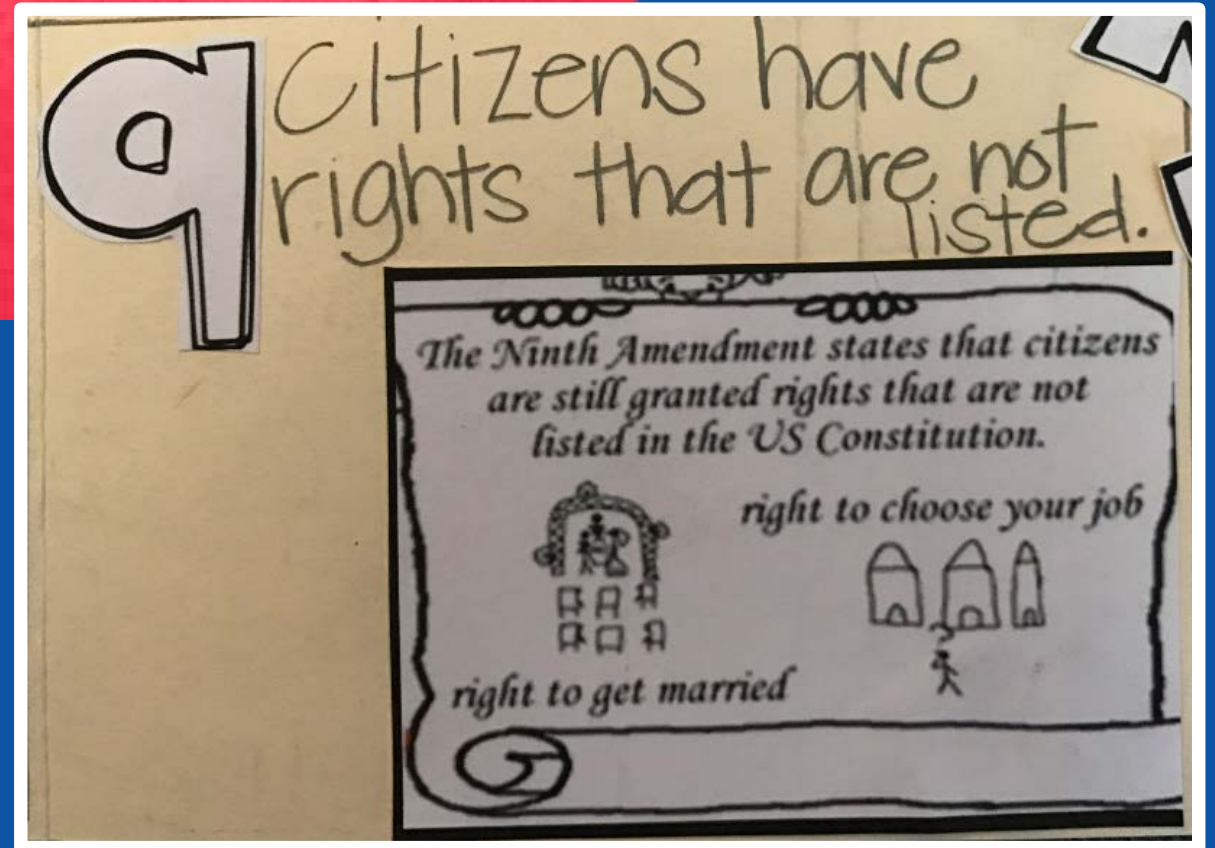 9
Citizens have
rights that are not
listed.
The Ninth Amendment states that citizens
are still granted rights that are not
listed in the US Constitution.
right to choose your job
?
right to get married